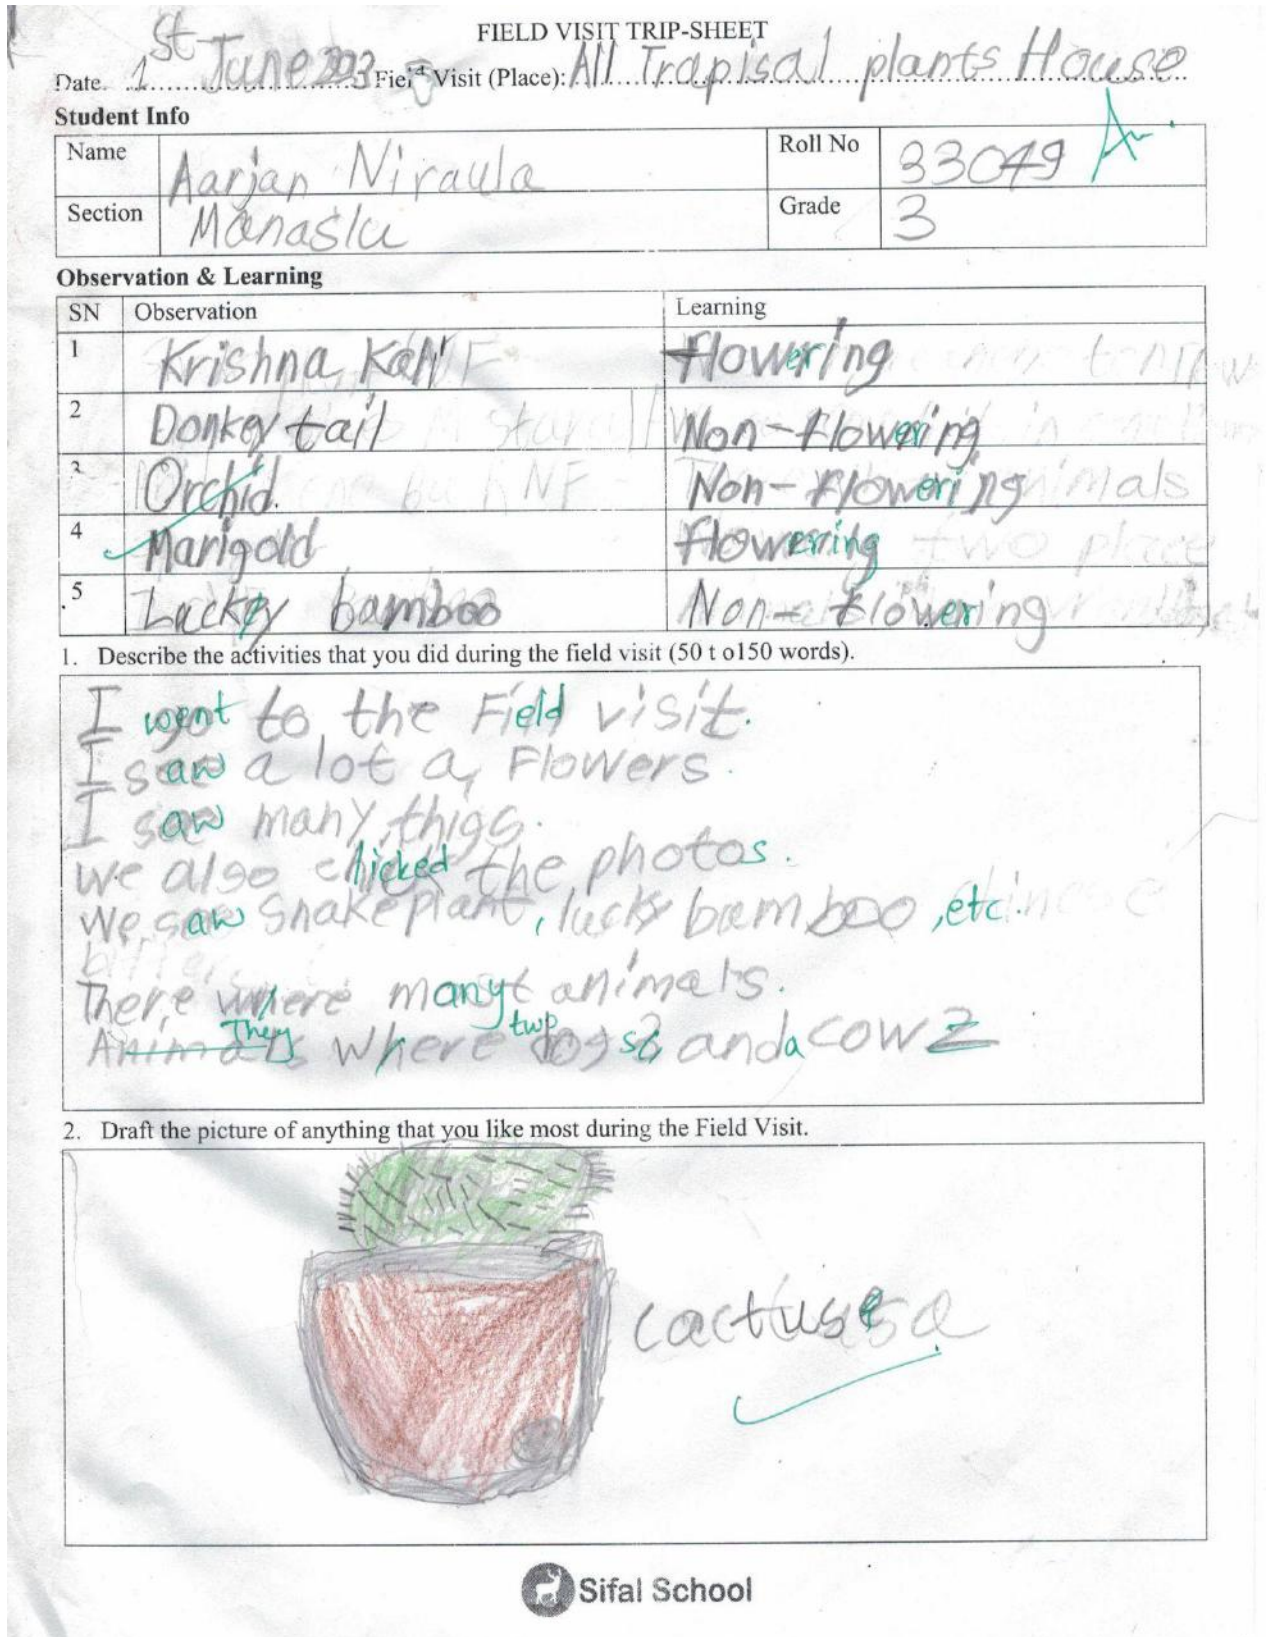 FIELD VISIT TRIP-SHEET
Date. 1st June 2023 Field Visit (Place): All Trapisal plants House
Student Info
Name Aarjan Niraula Roll No 33049
Section Manaslu Grade 3
Observation & Learning
SN Observation Learning
1 Krishna Flowering
2 Donkey tail Non-flowering
3 Orchid. Non-flowering
4 Marigold flowering
5 Lucky bamboo Non-flowering
1. Describe the activities that you did during the field visit (50 t o150 words).
I went to the Field visit.
I saw a lot a, Flowers.
I saw many thigs.
We also clicked the photos.
We saw snake plant, lucky bamboo, etc.
There where many animals.
They where two dogs and a cow
2. Draft the picture of anything that you like most during the Field Visit.
cactus
Sifal School